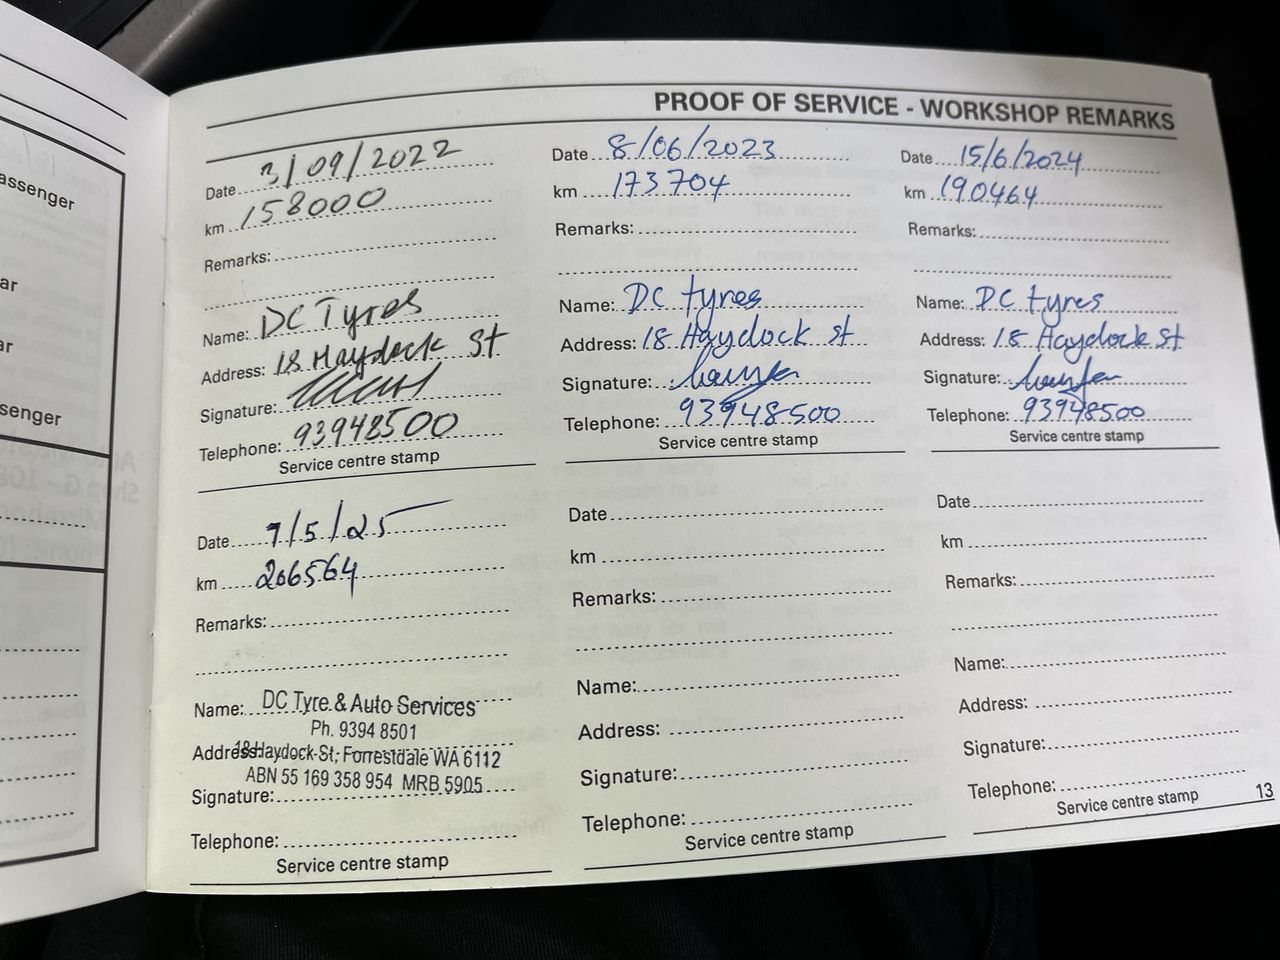 assenger
ar
ar
senger
PROOF OF SERVICE - WORKSHOP REMARKS
Date 3/09/2022
km 158000
Remarks:
Name: DC Tyres
Address: 18 Haydock St
Signature:
Telephone: 93948500
Service centre stamp
Date 8/06/2023
km 173704
Remarks:
Name: DC tyres
Address: 18 Haydock st
Signature:
Telephone: 93948500
Service centre stamp
Date 15/6/2024
km 190464
Remarks:
Name: DC tyres
Address: 18 Haydock St
Signature:
Telephone: 93948500
Service centre stamp
Date 7/5/25
km 206564
Remarks:
Name: DC Tyre & Auto Services
Ph. 9394 8501
Address: 18 Haydock St, Forrestdale WA 6112
ABN 55 169 358 954 MRB 5905
Signature:
Telephone:
Service centre stamp
Date
km
Remarks:
Name:
Address:
Signature:
Telephone:
Service centre stamp
Date
km
Remarks:
Name:
Address:
Signature:
Telephone:
Service centre stamp
13